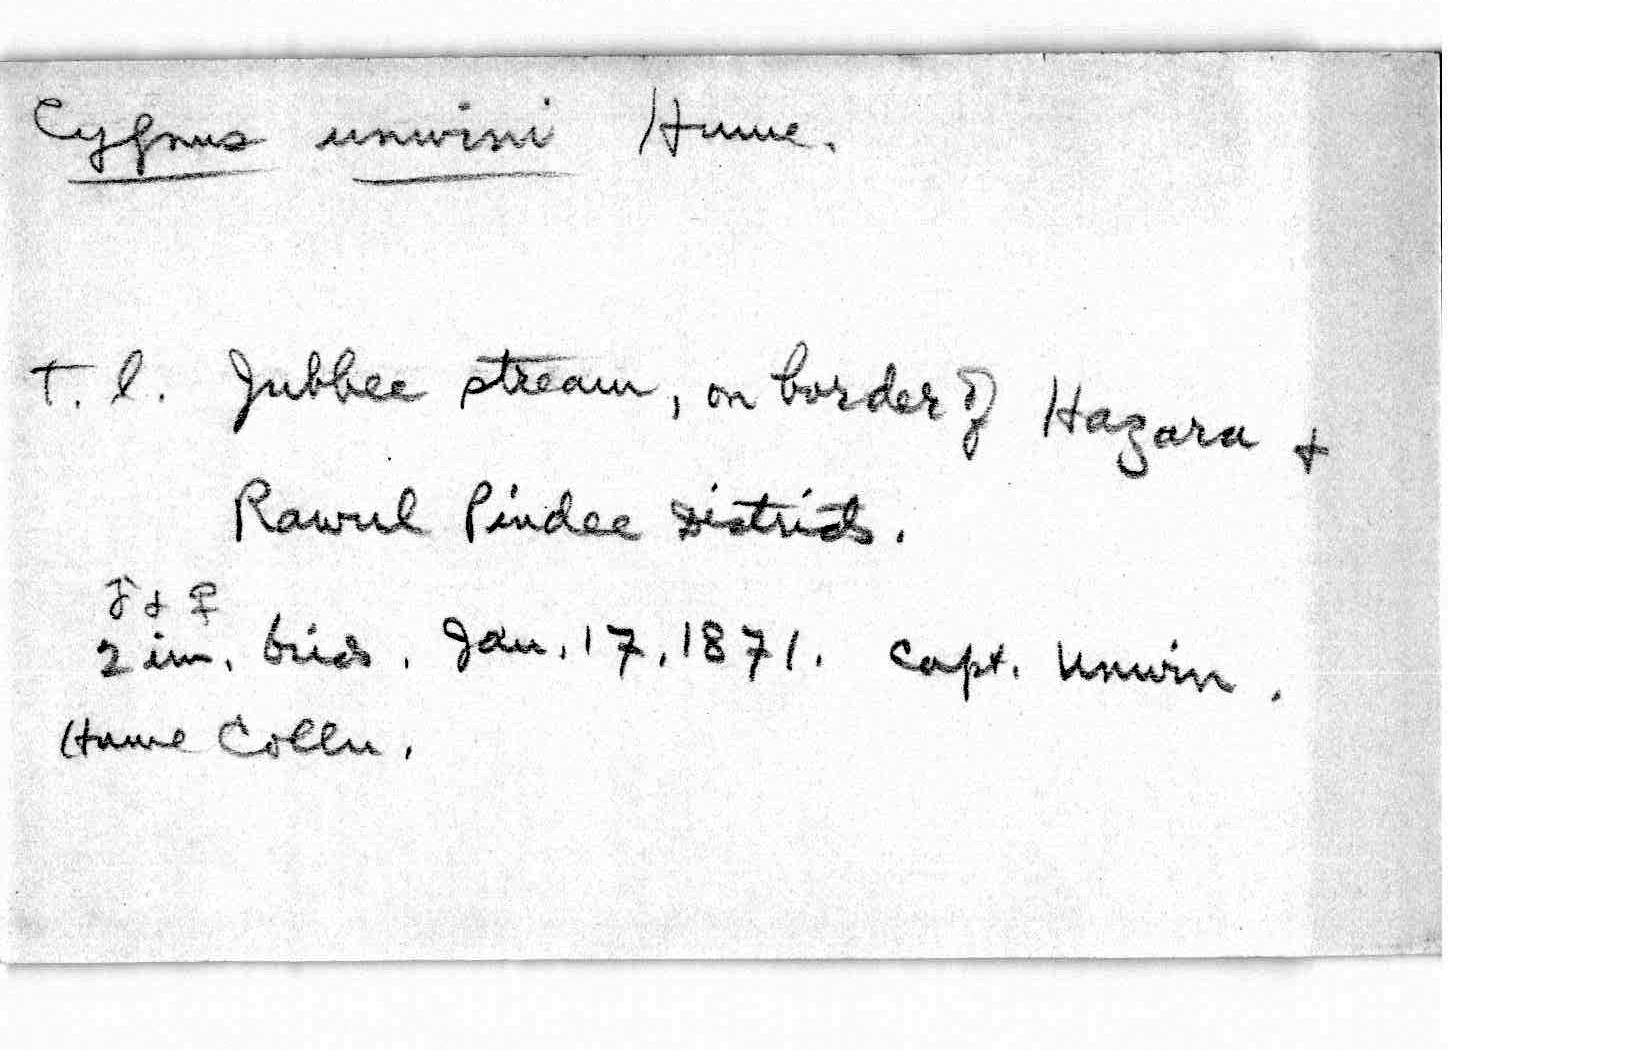 Cygnus unwini Hume.
T. l. Jubbee stream, on border of Hazara &
Rawul Pindee Districts.
♂ & ♀
2 im. birds. Jan. 17, 1871. Capt. Unwin.
Hume Colln.